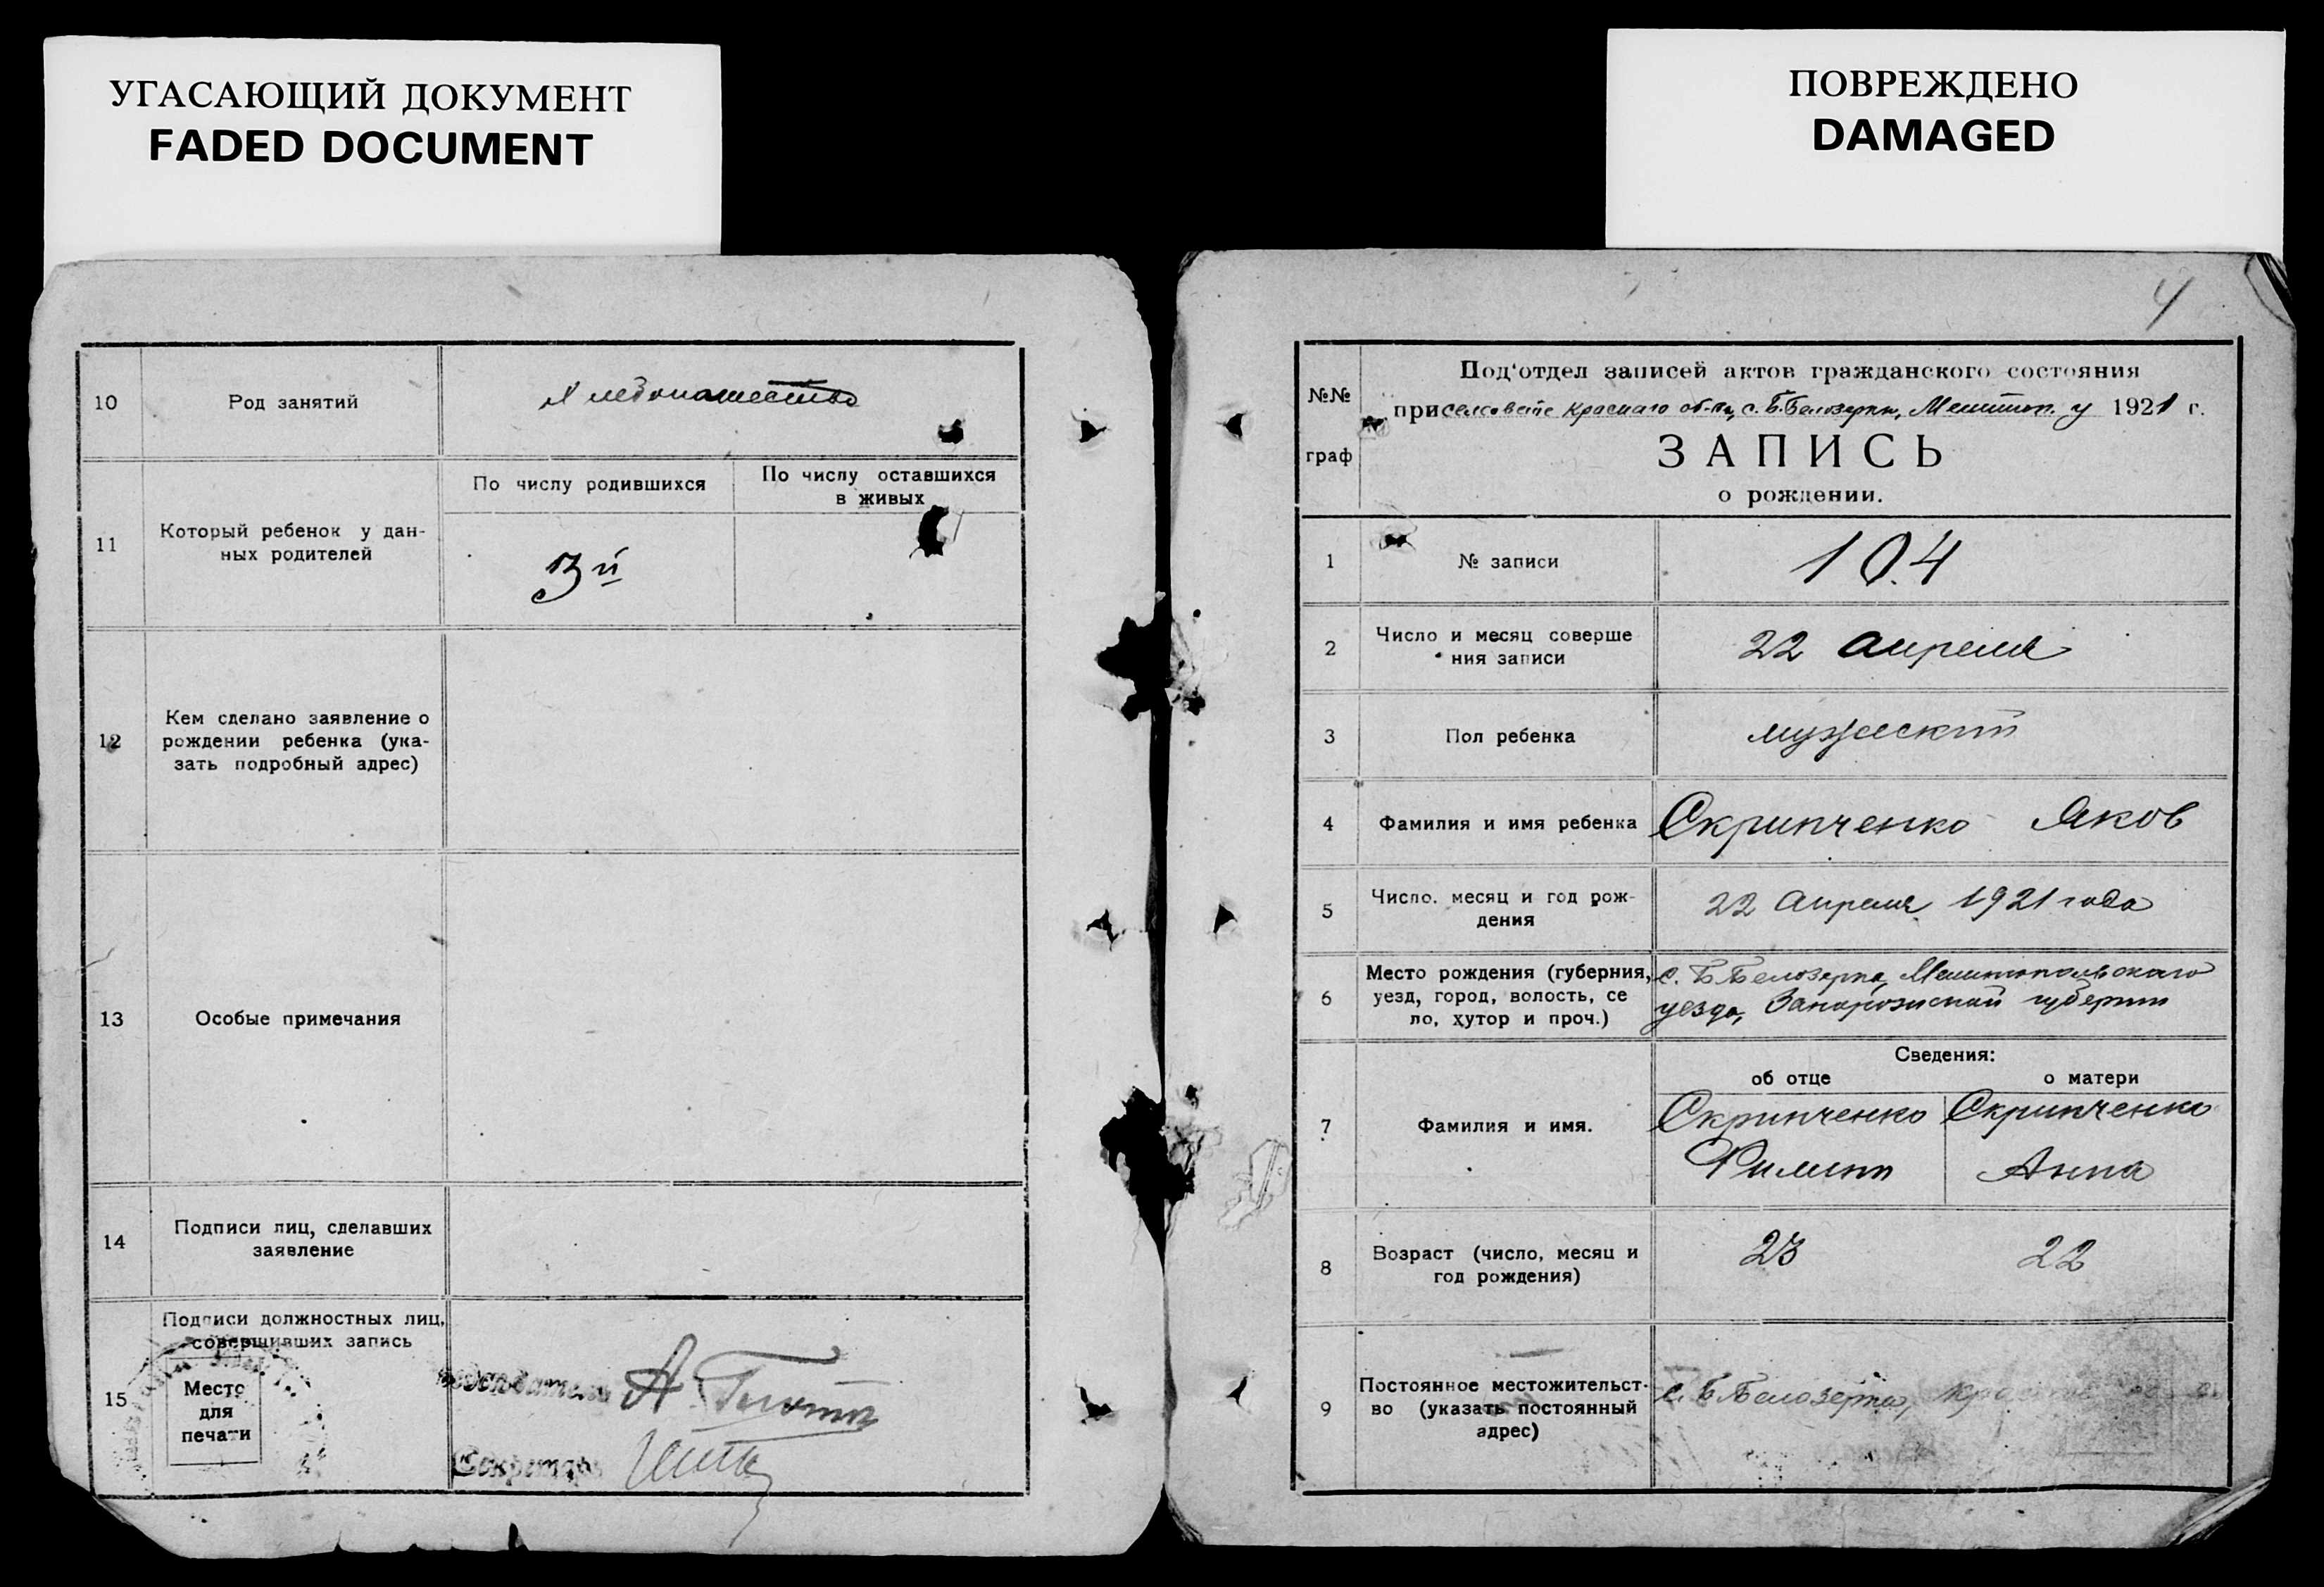 УГАСАЮЩИЙ ДОКУМЕНТ
FADED DOCUMENT
10
Род занятий
Хлебопашество
11
Который ребенок у дан-
ных родителей
По числу родившихся
По числу оставшихся
в живых
3й
12
Кем сделано заявление о
рождении ребенка (ука-
зать подробный адрес)
13
Особые примечания
14
Подписи лиц, сделавших
заявление
15
Подписи должностных лиц,
совершивших запись
Место
для
печати
А.
Секретарь
ПОВРЕЖДЕНО
DAMAGED
4
№№
граф
Под'отдел записей актов гражданского состояния
при сельсовете Краснаго об-ва, с. Б. Белозерки, Мелитоп. у 1921 г.
ЗАПИСЬ
о рождении.
1
№ записи
104
2
Число и месяц соверше
ния записи
22 апреля
3
Пол ребенка
мужеский
4
Фамилия и имя ребенка
Скрипченко Яков
5
Число. месяц и год рож-
дения
22 апреля 1921 года
6
Место рождения (губерния,
уезд, город, волость, се
ло, хутор и проч.)
с. Б Белозерка, Мелитопольскаго
уезда, Запорожской губернии
Сведения:
об отце
о матери
7
Фамилия и имя.
Скрипченко
Филипп
Скрипченко
Анна
8
Возраст (число, месяц и
год рождения)
23
22
9
Постоянное местожительст-
во (указать постоянный
адрес)
с. Б Белозерка,